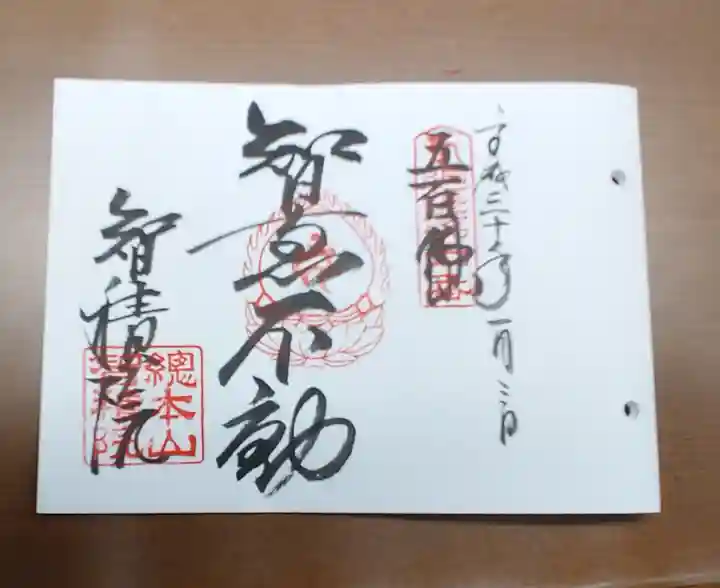 平成三十年一月三日
五百佛山
智恵不動
智積院
總本山
智積院